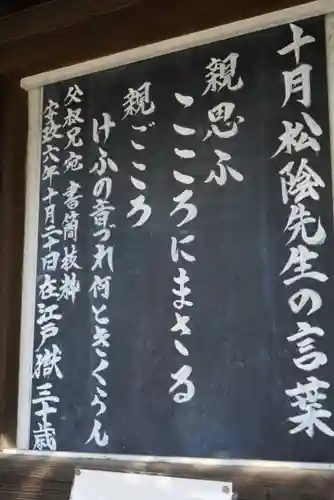 十月松陰先生の言葉
親思ふ
こころにまさる
親ごころ
けふの音づれ何ときくらん
父叔兄宛書簡抜粋
安政六年十月二十日在江戸獄三十歳